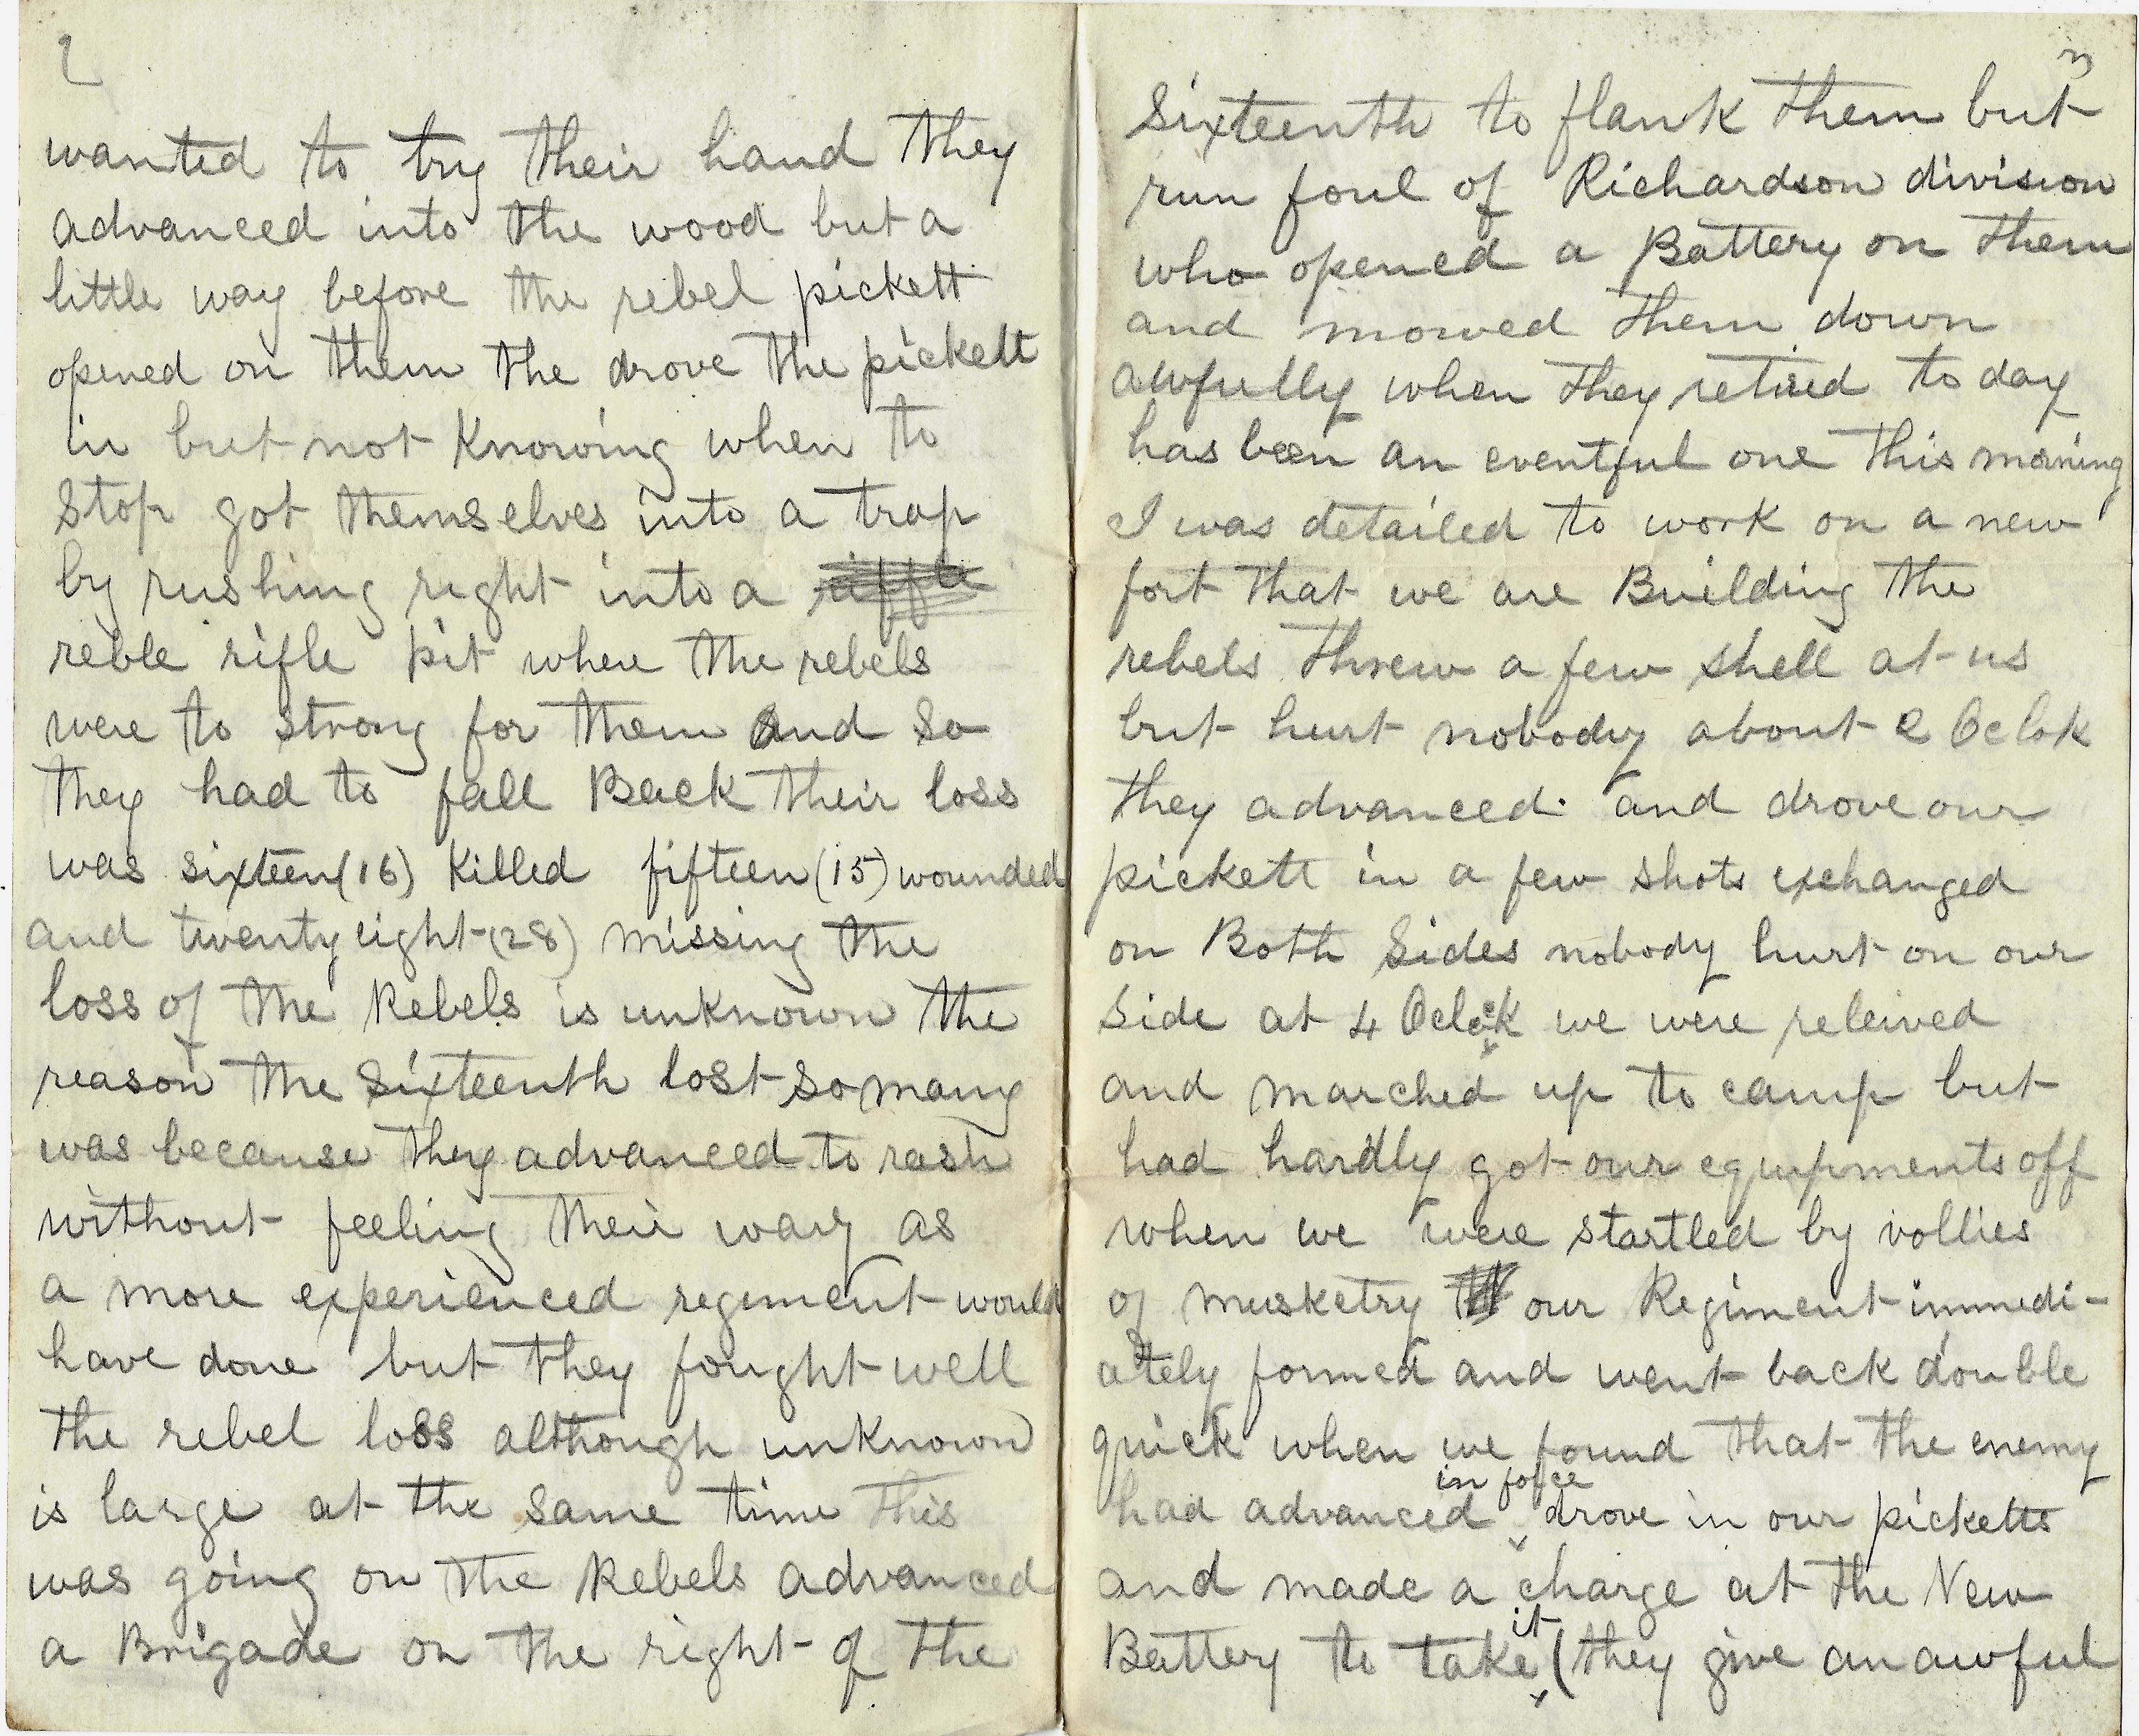 2
wanted to try their hand they
advanced into the wood but a
little way before the rebel pickett
opened on them the drove the pickett
in but not knowing when to
stop got themselves into a trap
by rushing right into a riffle
reble rifle pit where the rebels
were to strong for them and so
they had to fall Back their loss
was sixteen (16) killed fifteen (15) wounded
and twenty eight (28) missing the
loss of the Rebels is unknown the
reason the Sixteenth lost so many
was because they advanced to rash
without feeling their way as
a more experienced regiment would
have done but they fought well
the rebel loss although unknown
is large at the same time this
was going on the Rebels advanced
a Brigade on the right of the
3
Sixteenth to flank them but
run foul of Richardson division
who opened a Battery on them
and mowed them down
awfully when they retired to day
has been an eventful one this morning
I was detailed to work on a new
fort that we are Building the
rebels threw a few shell at us
but hurt nobody about 2 Oclok
they advanced. and drove our
pickett in a few shots exchanged
on Both Sides nobody hurt on our
Side at 4 Oclock we were releived
and marched up to camp but
had hardly got our equipments off
when we were startled by vollies
of musketry our Regiment immedi-
ately formed and went back double
quick when we found that the enemy
had advanced in force drove in our picketts
and made a charge at the New
Battery to take it (they give an awful